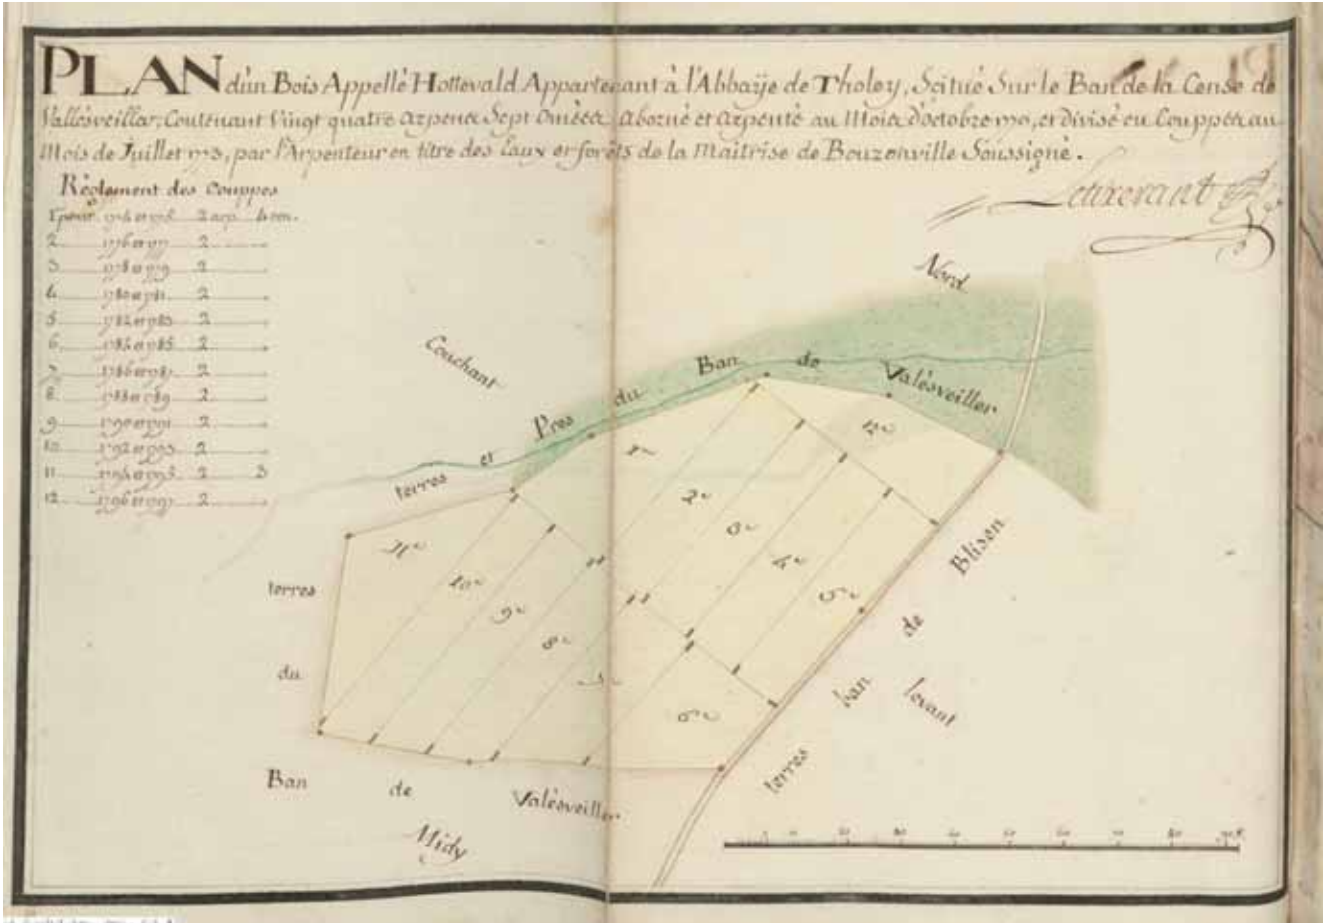 PLAN d'ún Bois Appellé Hottevald Appartenant à l'Abbaÿe de Tholey, Scitué Sur le Ban de la Cense de
Vallésveiller, Contenant Vingt quatre arpens Sept Omées, aborné et arpenté au Mois d'octobre 1770, et divisé en Couppes au
Mois de Juillet 1773, par l'Arpenteur en titre des Eaux et forêts de la Maitrise de Bouzonville Soussigné.
Règlement des Couppes
1 pour 1774 et 1775 2 arp
2 1776 et 1777 2
3 1778 et 1779 2
4 1780 et 1781 2
5 1782 et 1783 2
6 1784 et 1785 2
7 1786 et 1787 2
8 1788 et 1789 2
9 1790 et 1791 2
10 1792 et 1793 2
11 1794 et 1795 2 3
12 1796 et 1797 2
Nord
Couchant
terres et Pres du Ban de Valésveiller
1e
2e
3e
4e
5e
6e
8e
9e
10e
11e
12e
terres
du
Ban de Valésveiller
Midy
terres ban de Blisen
levant
10 20 30 40 50 60 70 80